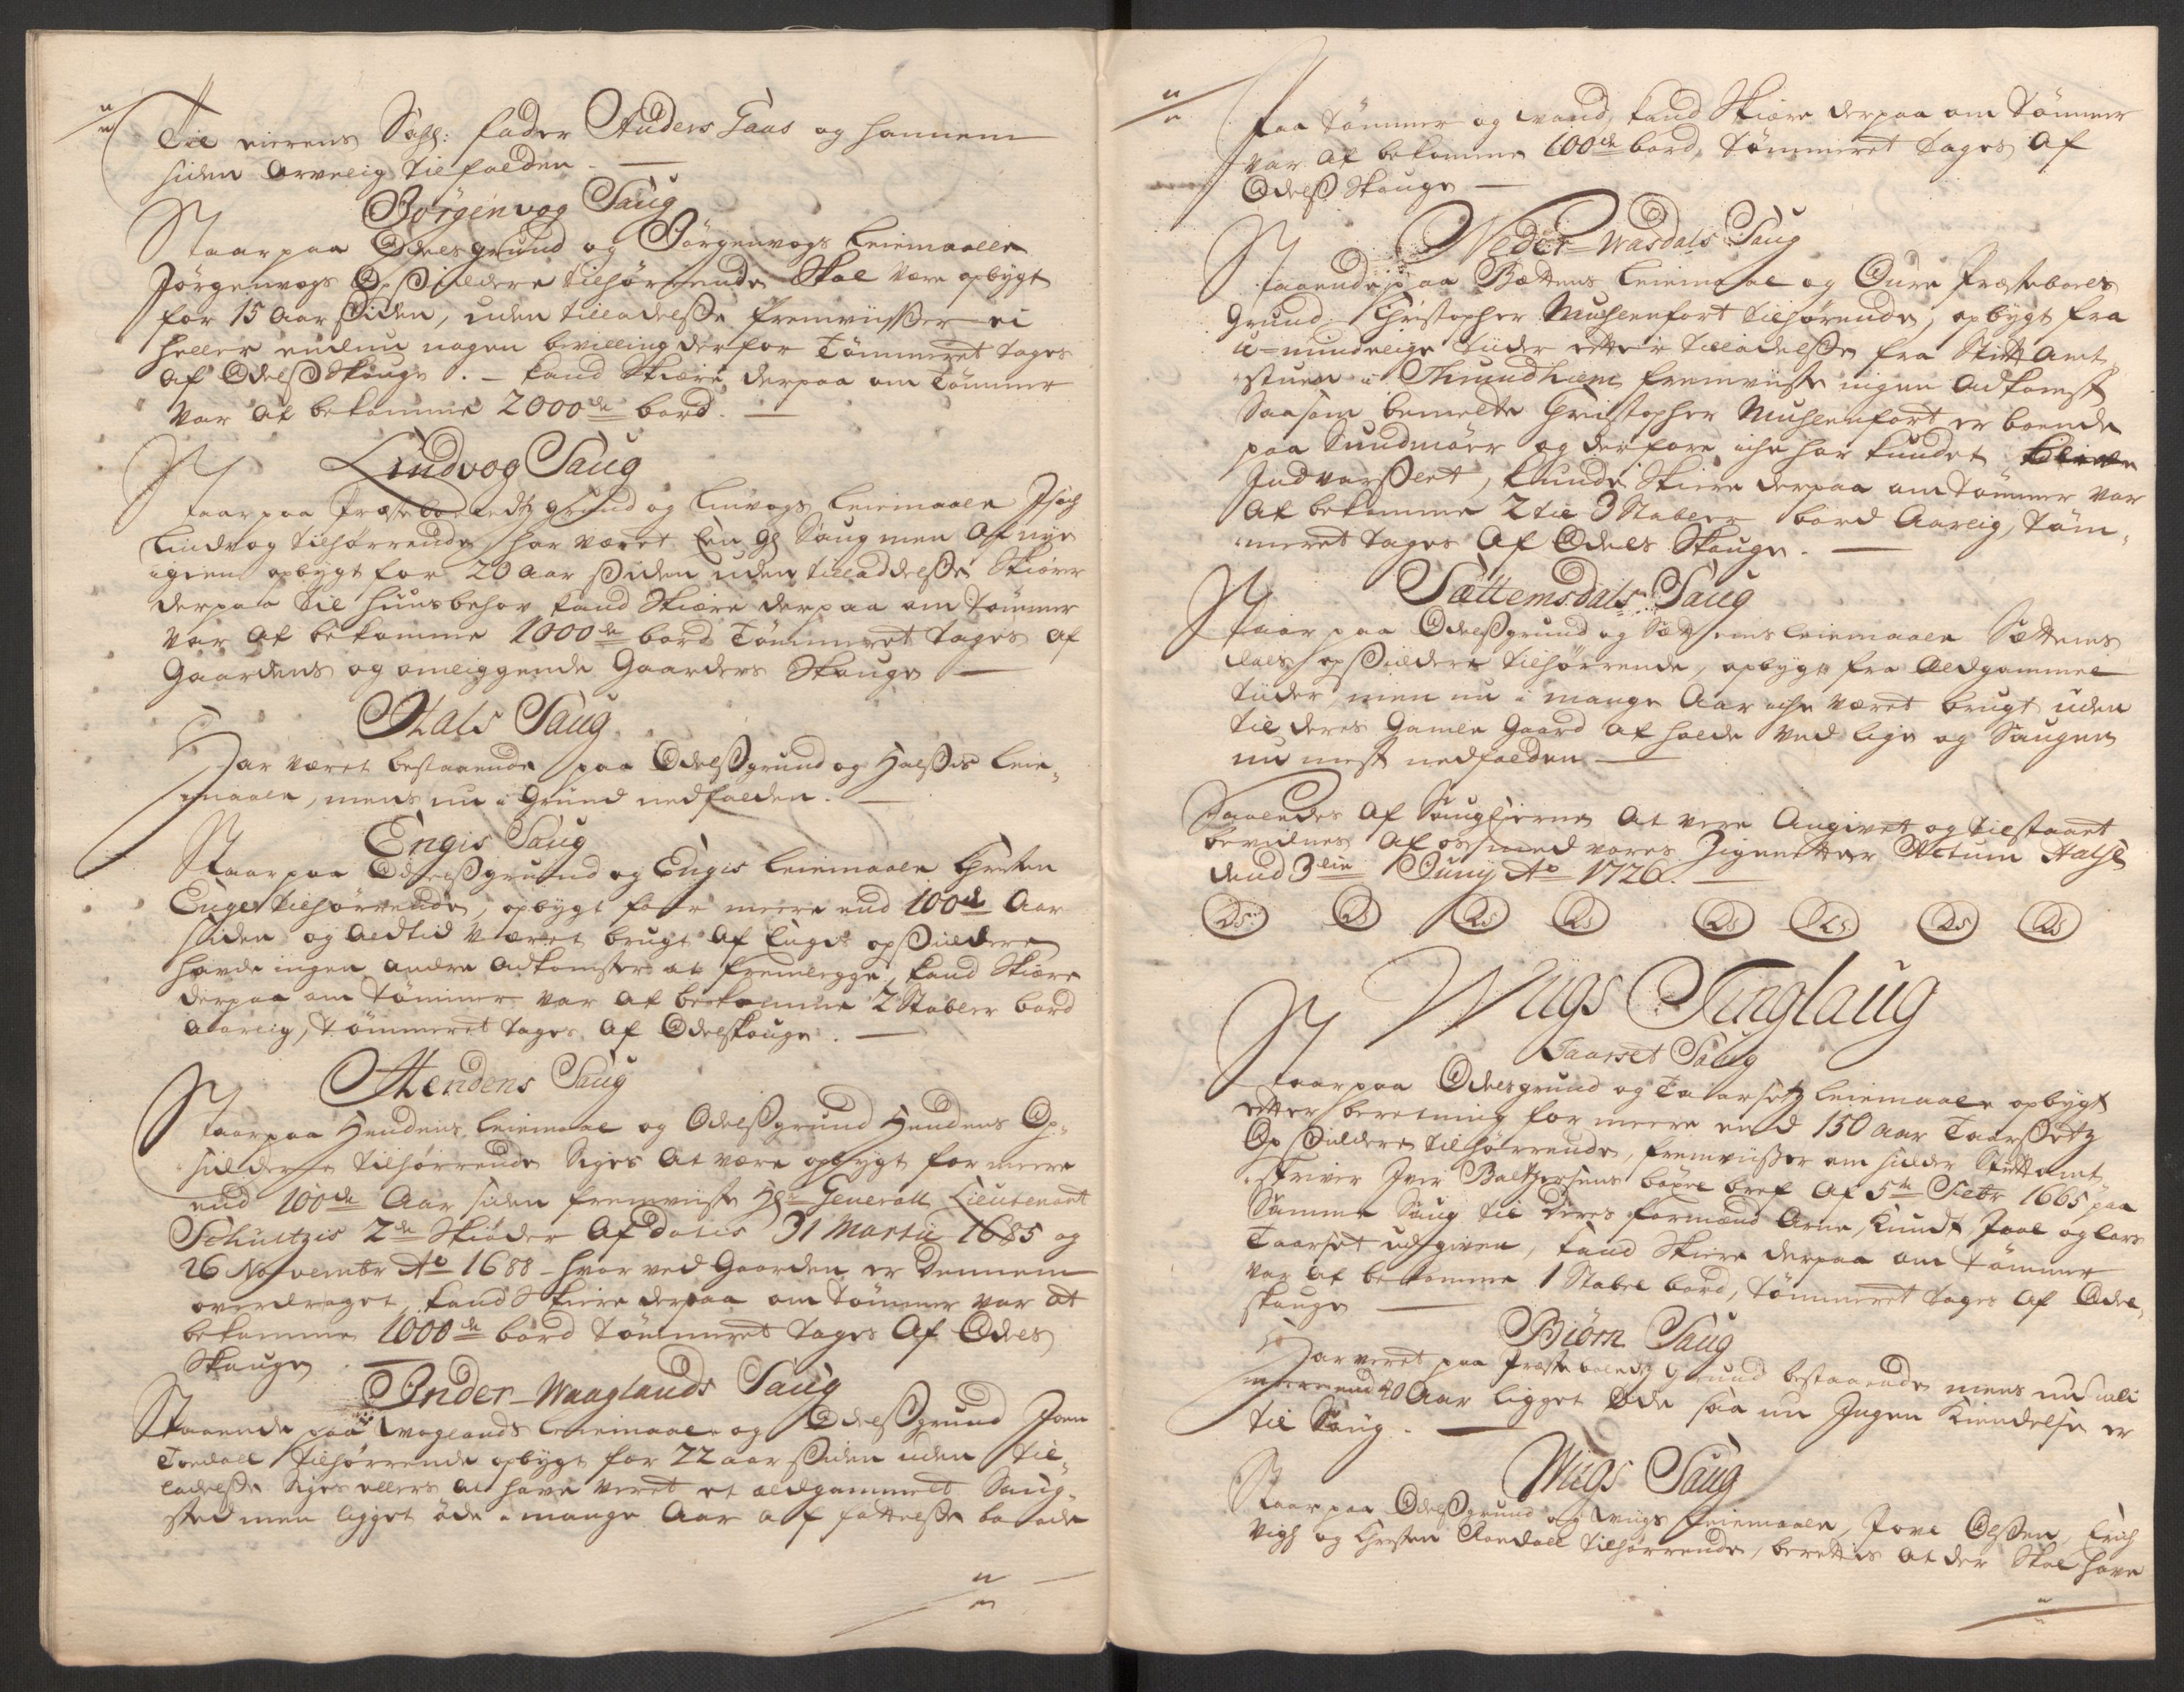 Til eierens Sahl: fader Anders Taas og hannem
siden arvelig tilfalden. —
Jørgenvog Saug
Staar paa Odelsgrund og Jørgenvogs leiemaale
Jørgenvogs Opsiddere tilhørrende Skal være opbygt
for 15 aar siden, uden tilladelsse fremviisser ei
heller endnu nogen bevilling derfor Tømmeret tages
af Odelss Skouge. — kand Skiære derpaa om Tømmer
var at bekomme 2000de bord. —
Lindvog Saug
Staar paa Præstebordedtz grund og Linvogs leiemaale Isach
Lindvog tilhørrende, har været en gl Saug men af nye
igien opbygt for 20 aar siden uden tilladdelsse Skiærer
derpaa til huusbehov kand Skiære derpaa om Tømmer
var at bekomme 1000de bord Tømmeret tages af
Gaardens og omliggende Gaarders Skouge —
Hals Saug
Har været bestaaende paa Odelssgrund og Halssis leie¬
maale, mens nu i Grund nedfalden. —
Engis Saug
Staar paa Odelssgrund og Engis leiemaale Christen
Enges tilhørrende, opbygt for meere end 100de Aar
siden og altid været brugt af Engis opsiddere
havde ingen andre adkomster at fremlegge, kand Skiære
derpaa om Tømmer var at bekomme 2 Stabler bord
aarlig, Tømmeret tages af Odelskouge. —
Hendens Saug
Staar paa Hendens leiemaal og Odelssgrund Hendens Op¬
siddere tilhørrende Siges at være opbygt for meere
end 100de Aar siden fremviiste Hr Generall Lieutenant
Schultzis 2de Skiøder af datis 31 Martii 1685 og
26 Novembr Ao 1688 – hvor ved Gaarden er dennem
overdraget, kand Skiere derpaa om Tømmer var at
bekomme 1000de bord Tømmeret tages af Odels
Skouge. —
Inder-Waaglands Saug
Staaende paa Woglands leiemaale og Odelssgrund Joen
Tordall tilhørrende opbygt for 22 aar siden uden til¬
ladelsse Siges ellers at have veret et ældgammelt Saug¬
sted men ligget øde i mange Aar af fattelsse baade
paa Tømmer og vand, kand Skiære derpaa om Tømmer
var at bekomme 100de bord, Tømmeret tages af
Odelss Skouge —
Neder-Wasdals Saug
Staaende paa Bottens leiemaal og Oure Præstebords
Grund Christopher Muhlenfort tilhørende, opbygt fra
u-mindelige tiider efter tilladelsse fra Stiftamt
stuen i Thrundhiem fremviiste ingen adkomst
Saasom bemelte Christopher Muhlenfort er boende
paa Sundmøer og derfore iche har kundet
Indvarsslet, kunde Skiere derpaa om Tømmer var
at bekomme 2 til 3 Stabler bord Aarlig, Tøm¬
meret tages af Odels Skouge. —
Sættemsdals Saug
Staar paa Odelssgrund og Sættems leiemaale Sættems
dals opsiddere tilhørrende, opbygt fra Aldgammel
tiider, men nu i mange Aar iche været brugt uden
til deres Gamle Gaard at holde ved lige og Saugen
nu mest nedfalden —
Saaledes af Saugeierne at vere Angivet og tilstaaet
bevidnes af os med vores Zignetter Actum Halse
dend 3die Juny Ao 1726. —
LS LS LS LS LS LS LS LS
Wiigs Tinglaug
Taarset Saug
Staar paa Odelsgrund og Taarsetz leiemaale opbygt
efter beretning for meere end 150 aar Taarssetz
Op siddere tilhørrende, fremviisser en sidder Stiftamt
skriver Iver Baltzersens bøxel bref af 5te Febr 1665 paa
Samme Saug til deres formænd Arne, Knudt Joel og Lars
Taarset udgiven, kand Skiere derpaa om Tømmer
var at bekomme 1 Stabel bord, Tømmeret tages af Odel¬
skouge —
Biörn Saug
Har veret paa Præstebolendtz Grund bestaaende mens nu i
meere end 40 Aar ligget øde saa nu Ingen Kiendelse er
til Saug. —
Wiigs Saug
Staar paa Odelssgrund og Wiigs leiemaale, Jone Olssen, Erich
Vigh og Christen Roedall tilhørrende, berettis at der Skal have